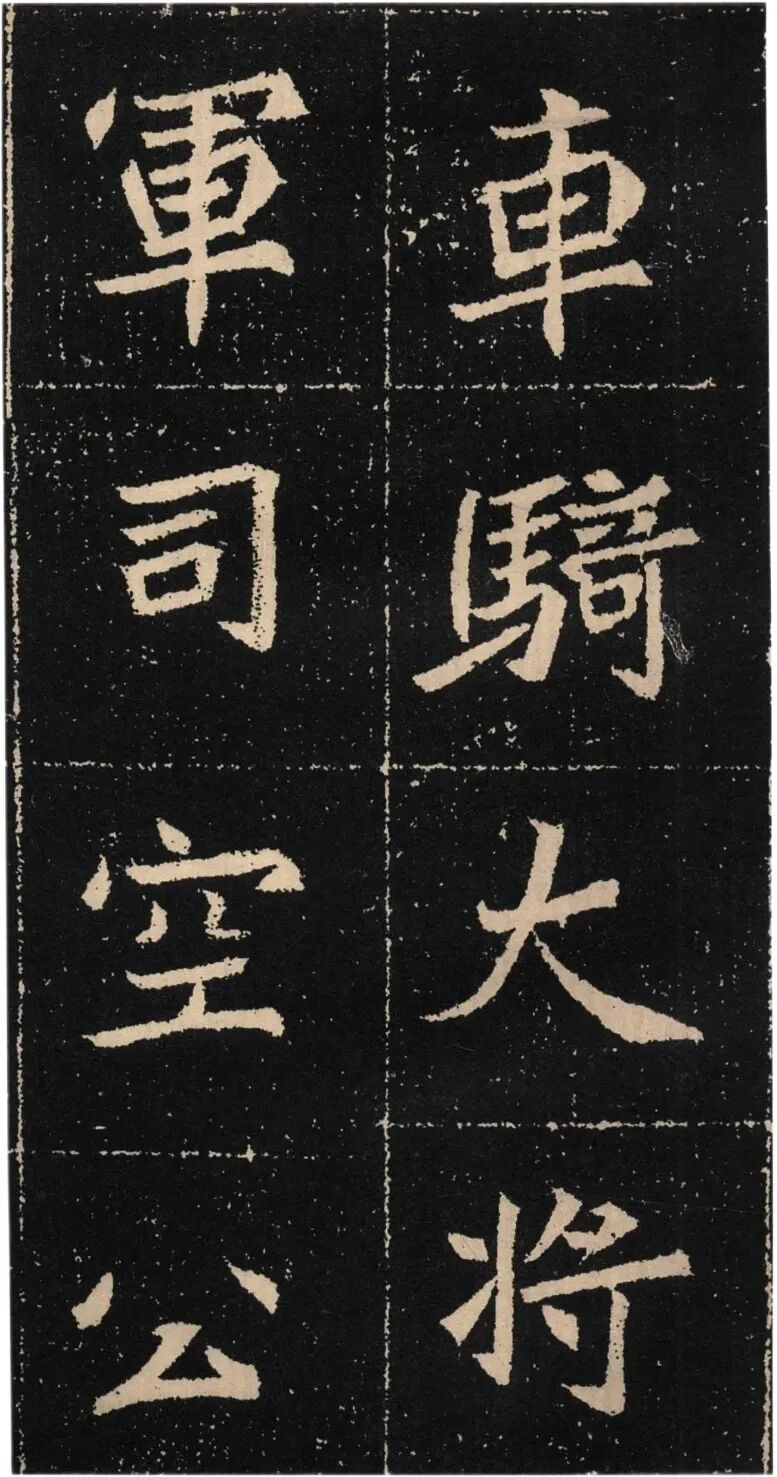 車騎大将
軍司空公